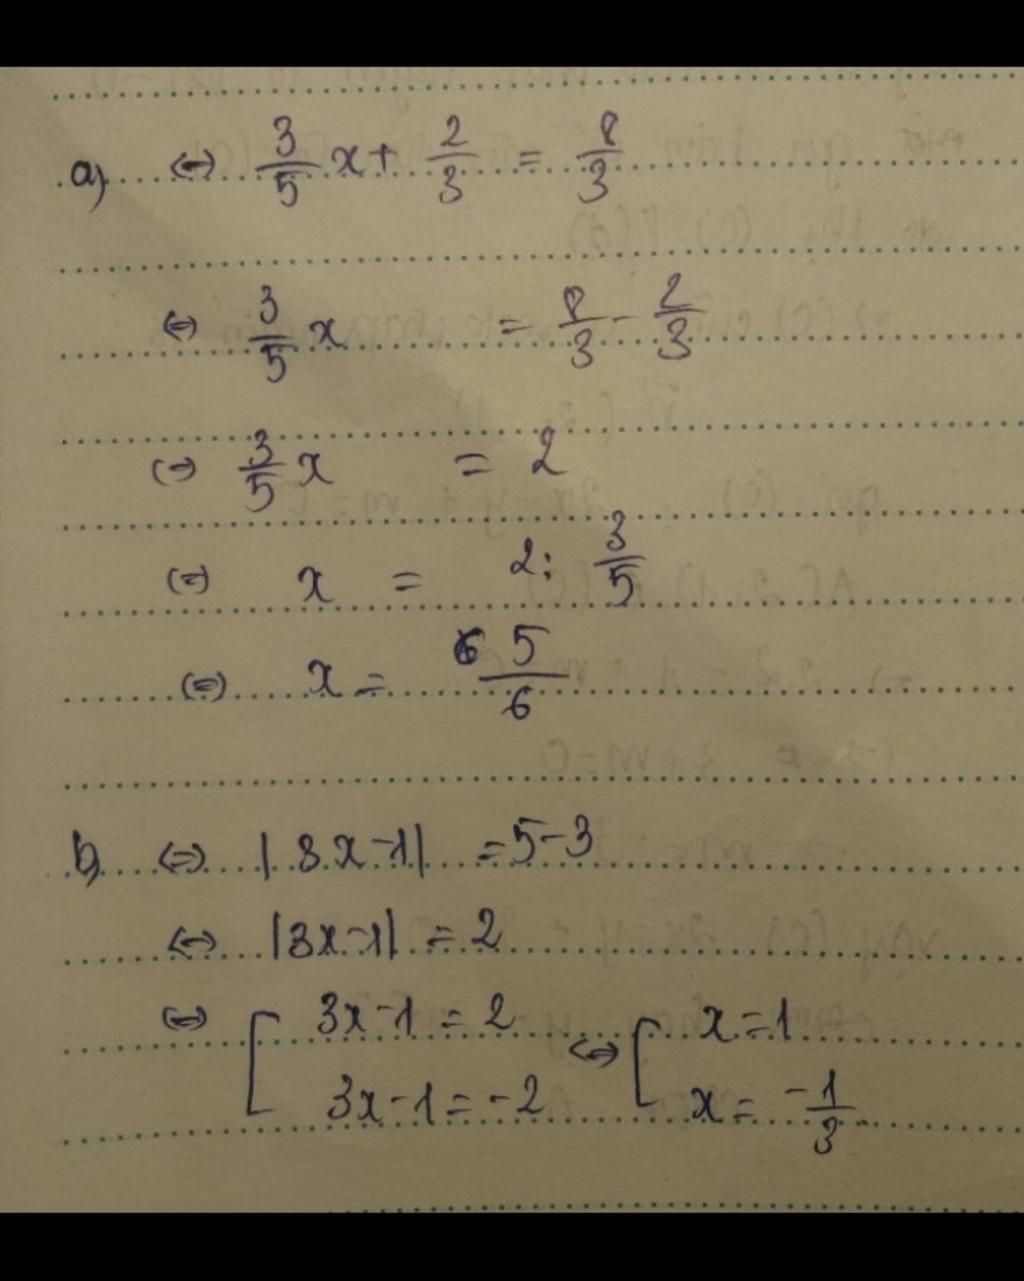 a) ⇔ 3/5 x + 2/3 = 8/3
⇔ 3/5 x = 8/3 - 2/3
⇔ 3/5 x = 2
⇔ x = 2 : 3/5
⇔ x = 5/6
b) ⇔ |3x-1| = 5-3
⇔ |3x-1| = 2
⇔ [ 3x-1 = 2 ⇔ [ x = 1
3x-1 = -2 x = -1/3